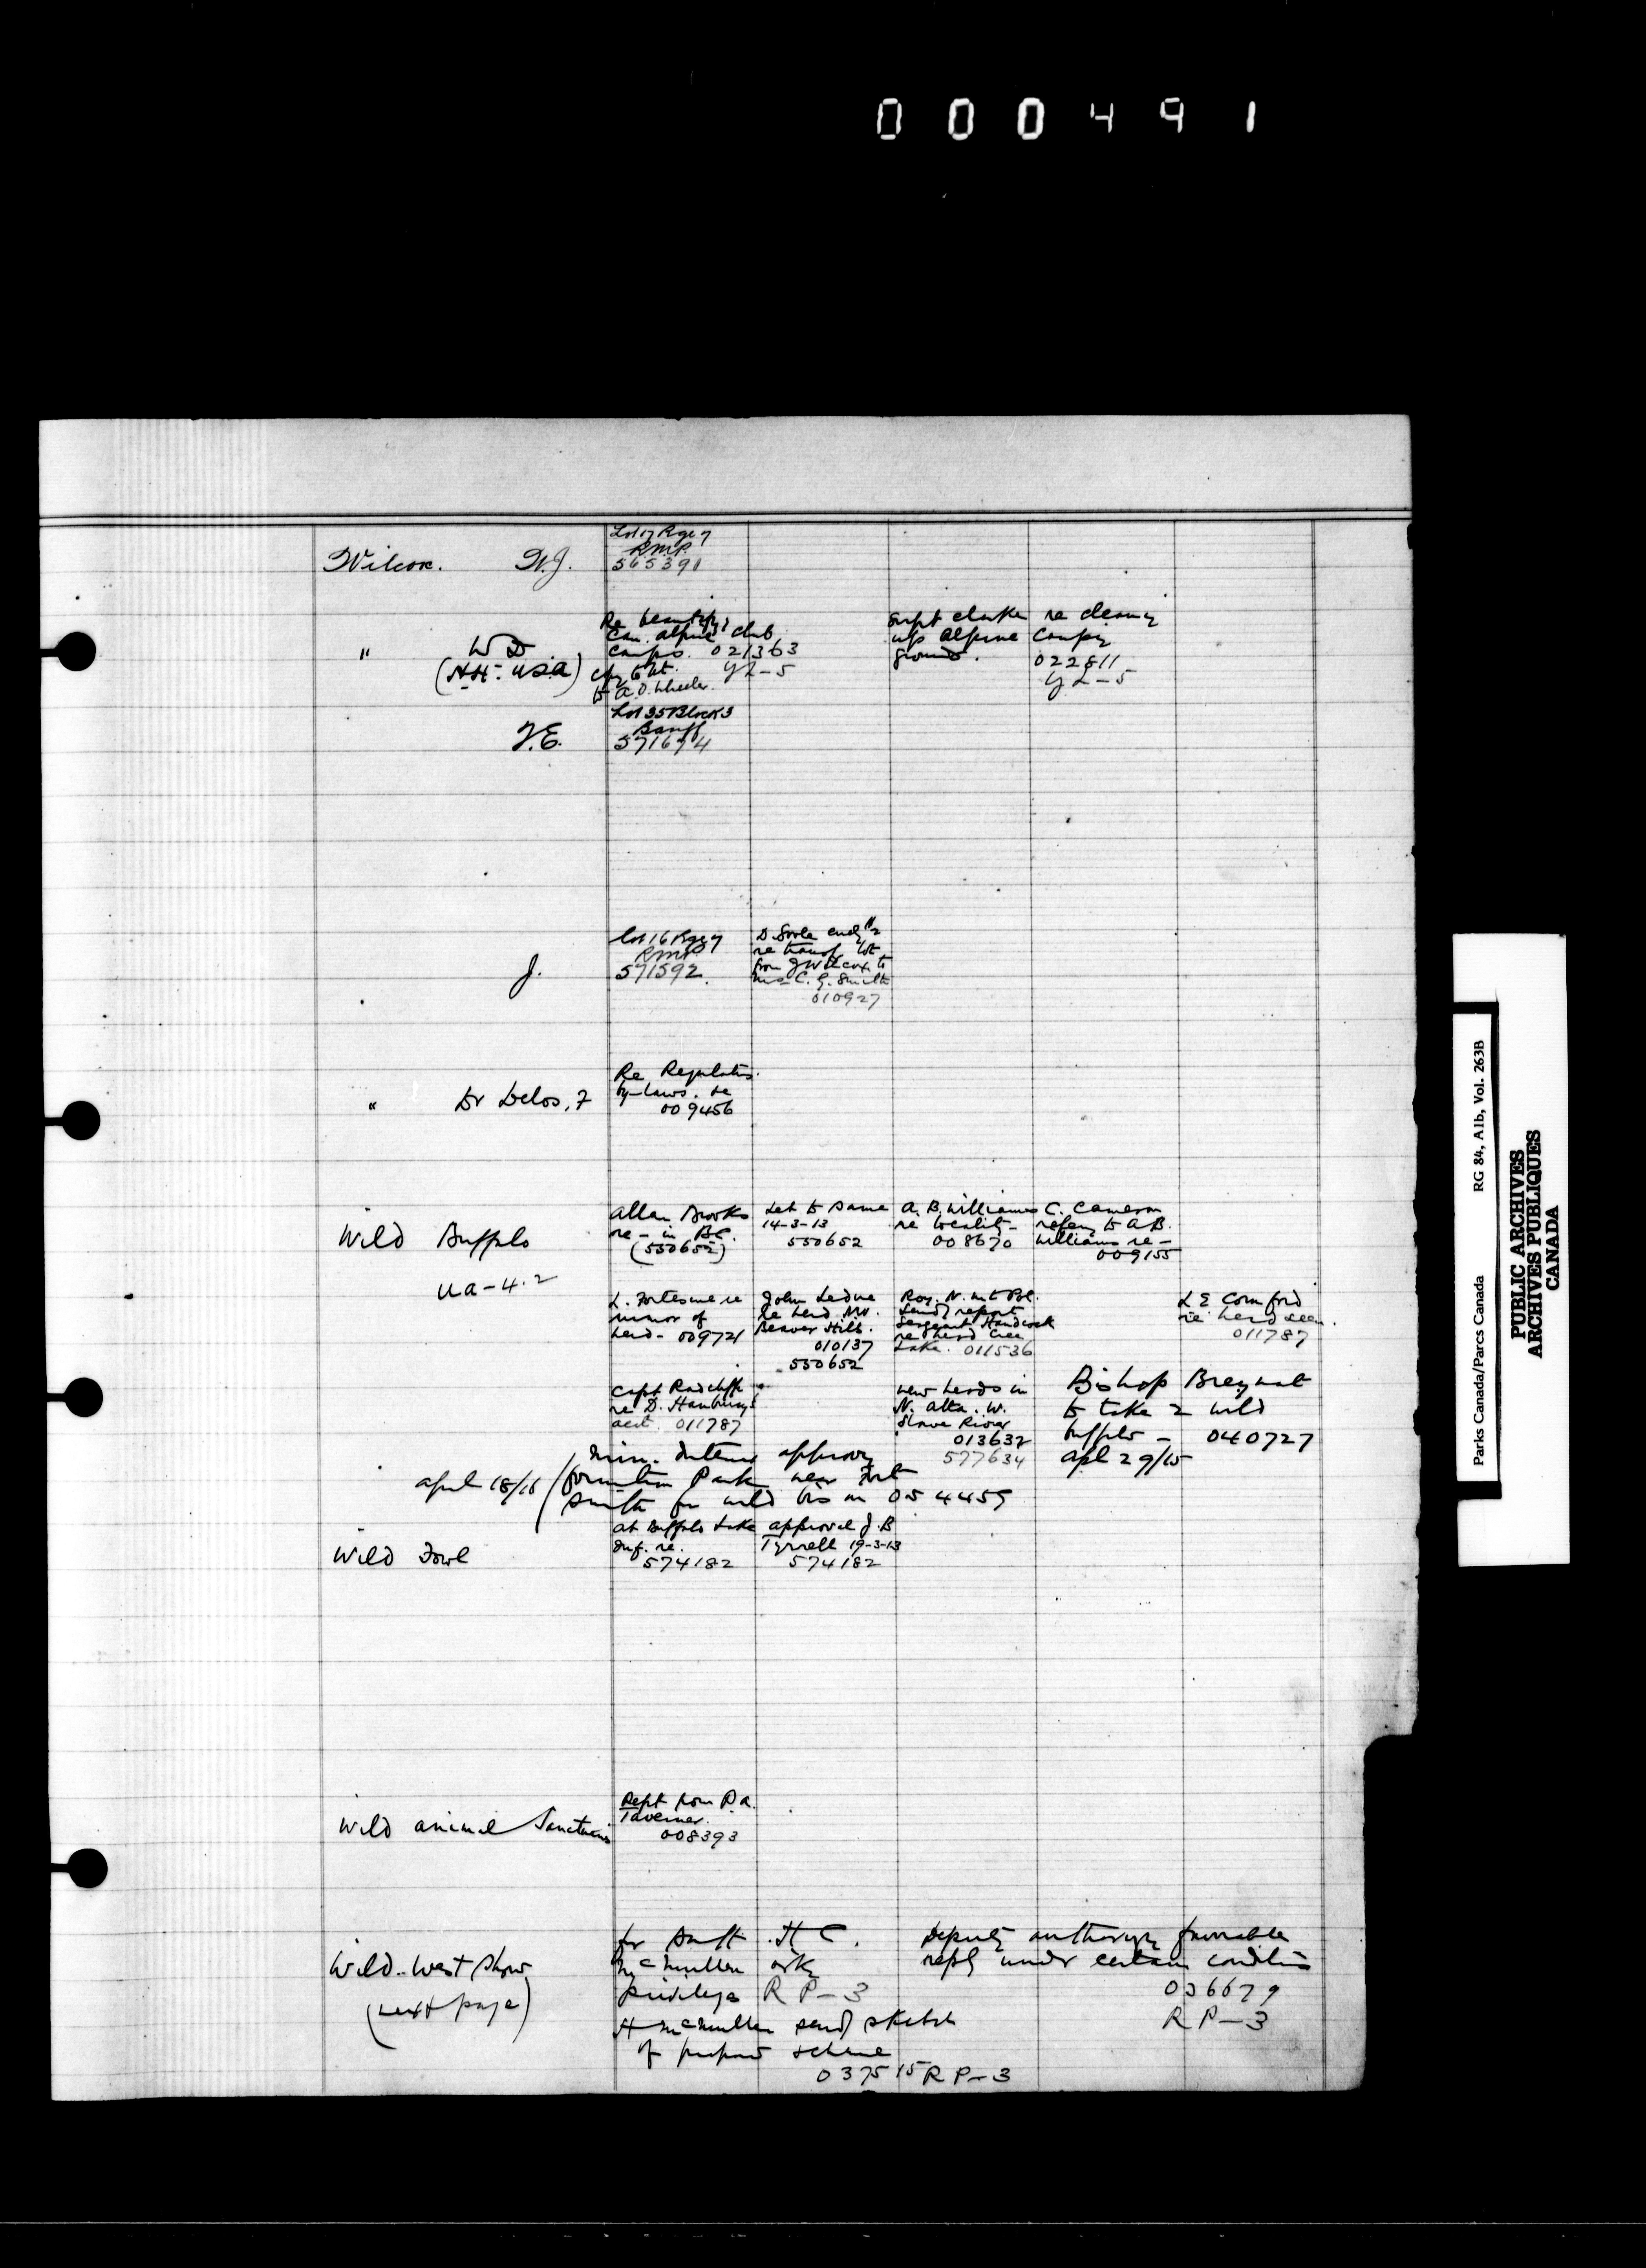 000491
Wilcox. W.J.
Lot 17 Rge 7
RMP.
565391
" W D
(N.H. USA)
Re beautifyg
Can. alpine club
camps. 021363
YL-5
to A.O. Wheeler.
Supt clarke re cleaning
up alpine camp
grounds. 022811
YL-5
J.E.
Lot 35 Block 3
Banff
571674
J.
Lot 16 Rge 7
RMP
571592.
re transf lot
from J Wilcox to
Mrs C. G. Smith
010927
" Dr Delos, F
Re Regulations
by-laws. re
009456
Wild Buffalo
ua-4.2
Allan Brooks
re - in BC.
(550652)
Let to same
14-3-13
550652
A. B. Williams
re locality -
008670
C. Cameron
referg to A.B.
Williams re -
009155
L. Fortescue re
rumor of
herd - 009721
John Ledue
re herd NW.
Beaver Hills.
010137
550652
Roy. N. W. Pol.
sendg report
Sergeant Handcock
re herd Cree
Lake. 011536
L E Comford
re herd seen.
011787
Capt Radcliffe
re D. Hanbury's
acct. 011787
new herds in
N. Alta. W.
Slave River
013632
577634
Bishop Breynat
to take 2 wild
buffalo - 040727
apl 29/15
april 18/16
Min. Interior approves
formation Park near Fort
Smith for wild bison 054459
Wild Fowl
at Buffalo Lake
Inf. re.
574182
approval J.B
Tyrrell 19-3-13
574182
Wild animal Sanctuaries
Rept from P.A.
Taverner.
008393
Wild West Show
(next page)
for Banff. H C.
McMullen asks
privilege RP-3
Deputy authorizes favorable
reply under certain conditions
036679
RP-3
H McMullen sends sketch
of proposed scheme
037515 RP-3
Parks Canada/Parcs Canada RG 84, A1b, Vol. 263B
PUBLIC ARCHIVES
ARCHIVES PUBLIQUES
CANADA